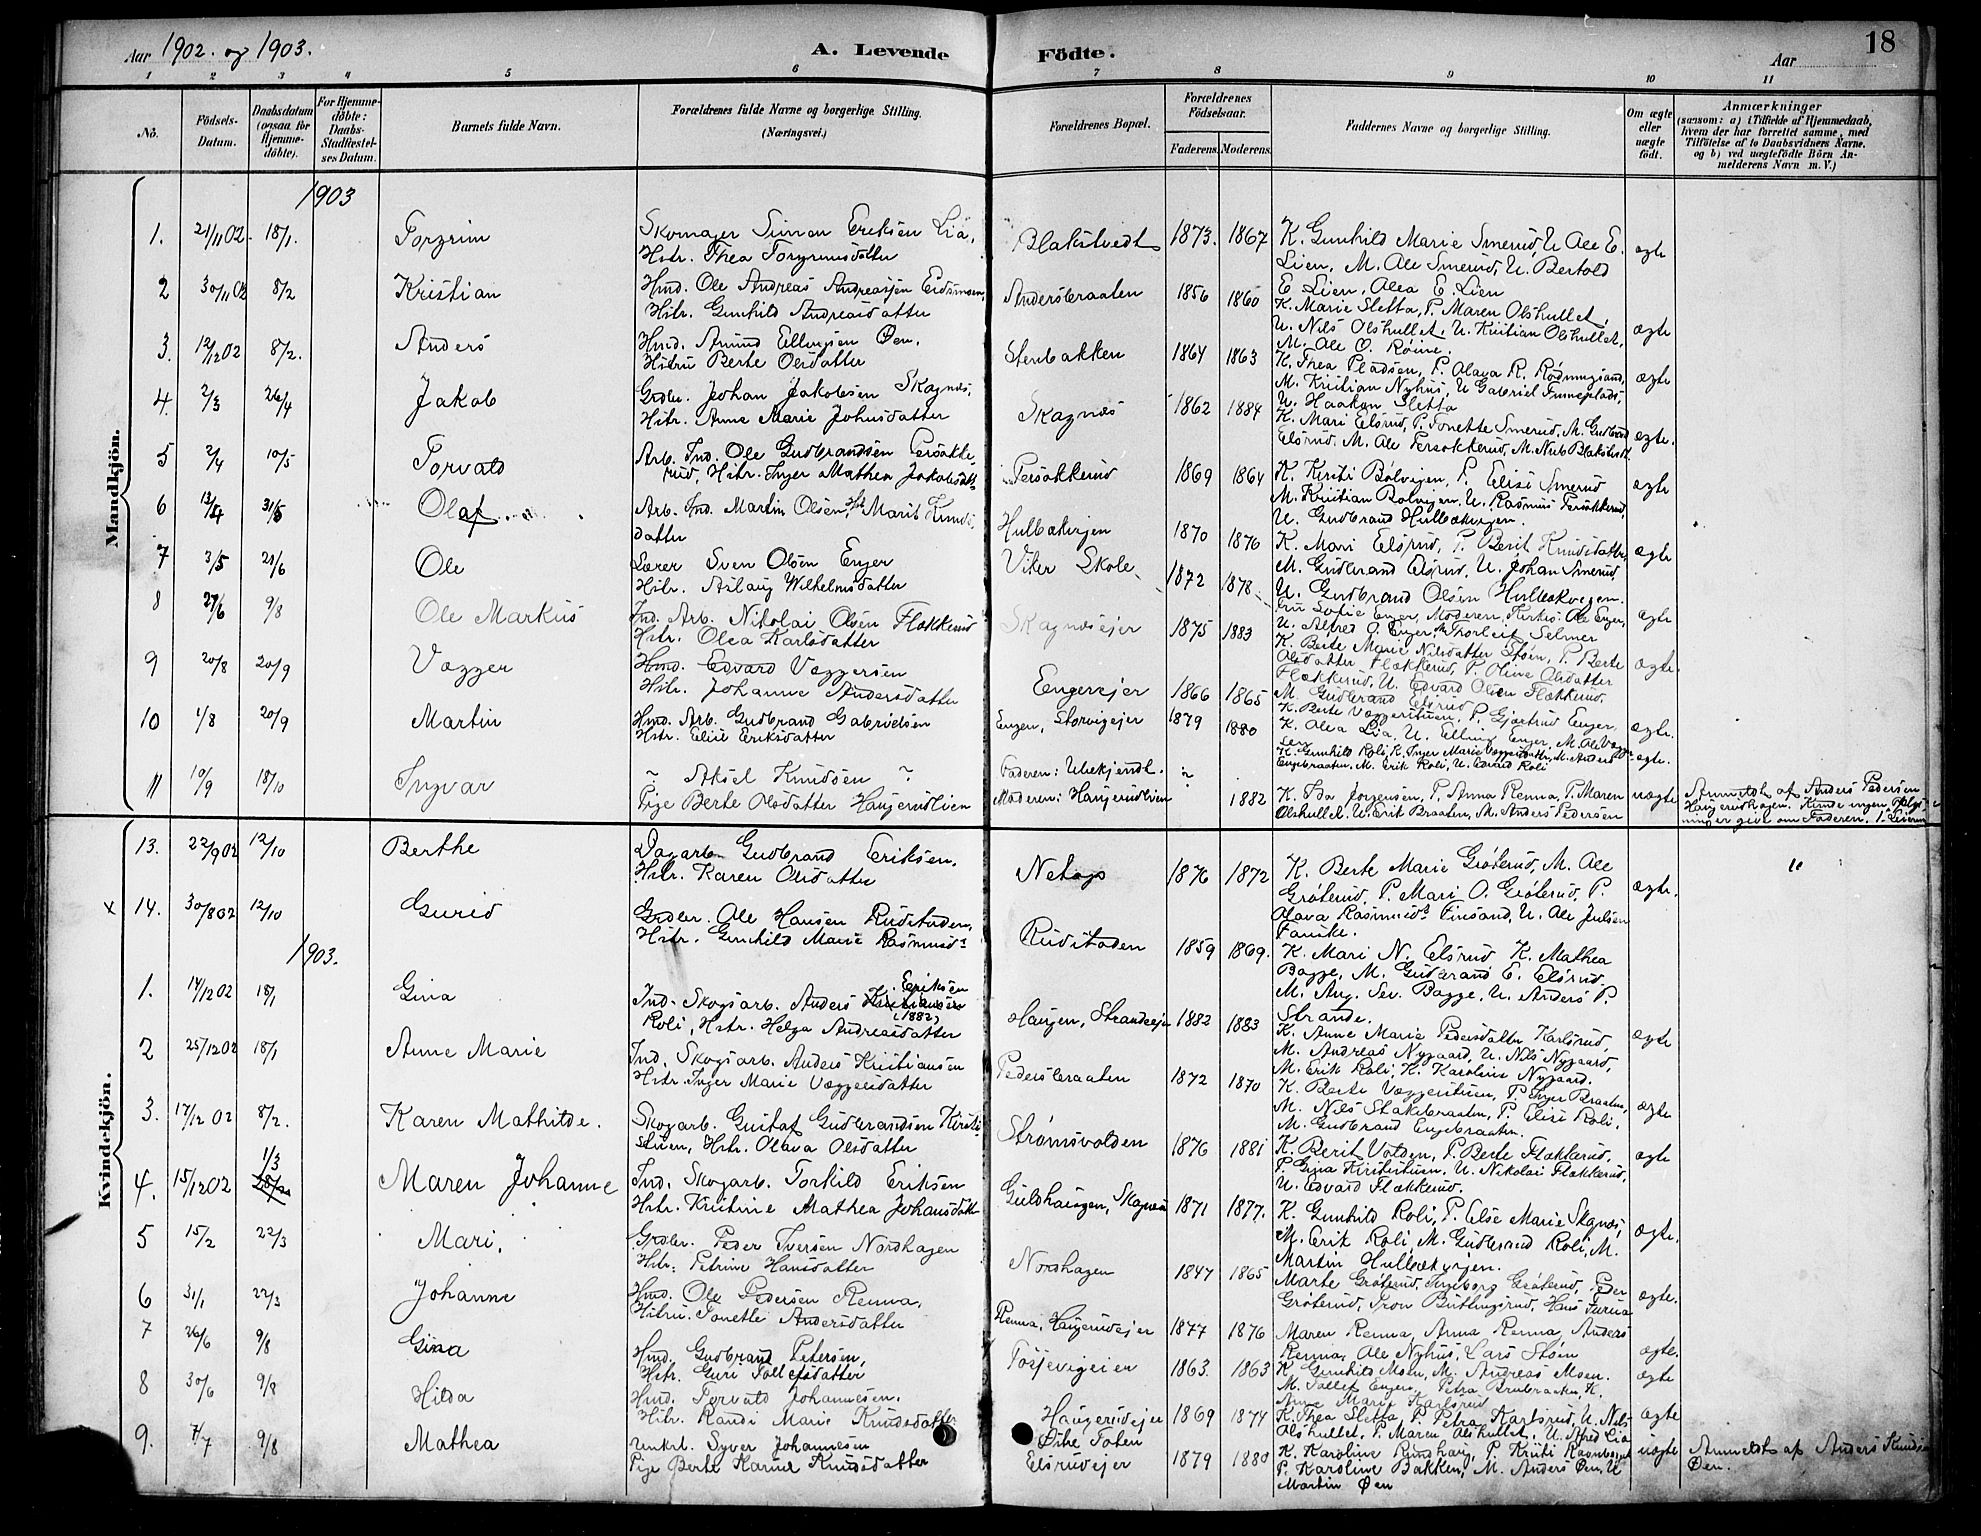 Aar 1902. og 1903. A. Levende Födte. Aar 18
1 2 3 4 5 6 7 8 9 10 11
No. Födsels-Datum. Daabsdatum (ogsaa for Hjemme-döbte). For Hjemme-döbte: Daabs-Stadfæstel-ses Datum. Barnets fulde Navn. Forældrenes fulde Navne og borgerlige Stilling. (Næringsvei.) Forældrenes Bopæl. Forældrenes Födselsaar. Faderens. Moderens. Faddernes Navne og borgerlige Stilling. Om ægte eller uægte födt. Anmærkninger (saasom: a) i Tilfælde af Hjemmedaab, hvem der har forrettet samme, med Tilföielse af to Daabsvidners Navne. og b) ved uægtefödte Börn An-melderens Navn m. V.)
Mandkjön.
1903
1. 21/11 02. 18/1. Torgrim Skomager Simon Eriksen Lia, Hstr. Thea Torgrimsdatter Blakstvedt 1873. 1867 K. Gunhild Marie Smerud, U. Ole E. Lien, M. Ole Smerud, U. Bertold E. Lien, Olea E. Lien ægte
2 30/11 02 8/2 Kristian Hmd. Ole Andreas Andreassen Eidsmoen, Hstr. Gunhild Andreasdatter Andersbraaten 1856 1860 K. Marie Sletta, P. Maren Olshullet, U. Nils Olshullet, U. Kristian Olshullet, M. Ole O. Røine. ægte
3. 12/12 02 8/2. Anders Hmd. Amund Ellingsen Øen, Hustru Berte Olsdatter Stenbakken 1864 1863 K. Thea Pladsen, P. Olava R. Rødningsand, M. Kristian Nyhus, U. Gabriel Finneplads, U. Haakon Sletta ægte
4. 2/3 26/4 Jakob Grdbr. Johan Jakobsen Skagnæs, Hstr. Anne Marie Johnsdatter Skagnæs 1862 1884 K. Mari Elsrud, P. Tonette Smerud, M. Gudbrand Elsrud, M. Ole Persøkkerud, M. Nils Blakstvedt ægte.
5 2/4 10/5 Torvald Arb. Ind. Ole Gudbrandsen Persøkkerud, Hstr. Inger Mathea Jakobsdatter Persøkkerud 1869 1864 K. Kristi Bølvigen, P. Elise Smerud M. Kristian Bølvigen, U. Rasmus Persøkkerud, U. Gudbrand Hulbækvigen. ægte
6 13/4 31/5 Olaf Arb. Ind. Martin Olsen, Hst. Marit Knudsdatter Hulbækvigen 1870 1876 K. Mari Elsrud, P. Berit Knudsdatter, M. Gudbrand Elsrud, U. Johan Smerud, U. Gudbrand Olsen Hulbækvigen. ægte
7 3/5 21/6 Ole Lærer Sven Olsen Enger Hstr. Aslaug Wilhelmsdatter Viker Skole 1872 1878 Fru Sofie Enger, Moderen, Kirkes. Ole Enger, U. Alfred O. Enger, Thorleif Selmer ægte
8 27/6 9/8 Ole Markus Ind. Arb. Nikolai Olsen Flækkerud Hstr. Olea Karlsdatter Skagnæsejer 1875 1883 K. Berte Marie Nilsdatter Støen, P. Berte Olsdatter Flækkerud, P. Oline Olsdatter Flækkerud, U. Edvard Olsen Flækkerud, M. Gudbrand Elsrud ægte.
9 20/8 20/9 Vegger Hmd. Edvard Veggersen Hstr. Johanne Andersdatter Engerejer 1866 1865 K. Berte Veggerstuen, P. Gjartrud Enger, K. Olea Lia, U. Elling Enger, M. Ole Veggersen ægte.
10 1/8 20/9 Martin Hmd. Arb. Gudbrand Gabrielsen Hstr. Elise Eriksdatter Engen, Storvigejer 1879 1880 K. Gunhild Roli, K. Inger Marie Veggersdatter, M. Anders Engebraaten, M. Erik Roli, U. Edvard Roli ægte.
11 10/9 18/10 Ingvar ~ Aksel Knudsen ? Pige Berte Olsdatter Haugerudlien Faderen: Ubekjendt. Moderen: Haugerudlien ~ 1882 K. Ida Jørgensen, P. Anna Renna, P. Maren Olshullet, U. Erik Braaten, M. Anders Pedersen uægte Anmeldt af Anders Pedersen Haugerudhagen. Kunde ingen Oplysninger give om Faderen.
Kvindekjön.
13. 22/9 02 12/10 Berthe Dagarb. Gudbrand Eriksen, Hstr. Karen Olsdatter Netop 1876 1872 K. Berte Marie Grøterud, M. Ole Grøterud, P. Mari O. Grøterud, P. Olava Rasmusd. Finsand, U. Ole Julsen Fauske. ægte. "
x 14. 30/8 02 12/10 Gurid Grdbr. Ole Hansen Rudstaden, Hstr. Gunhild Marie Rasmusd. Rudstaden 1859 1869. K. Mari N. Elsrud K. Mathea Bagge, M. Gudbrand E. Elsrud. M. Aug. Sev. Bagge, U. Anders P. Strande.
1903.
1. 14/12 02 18/1 Gina Ind. Skogsarb. Anders Eriksen (1882) Roli, Hstr. Helga Andreasdatter Haugen, Strandeejer 1882 1883 K. Anne Marie Pedersdatter Karlsrud, M. Andreas Nygaard, U. Nils Nygaard, M. Erik Roli, K. Karoline Nygaard. ægte
2 25/12 02 18/1 Anne Marie Ind. Skogsarb. Anders Kristiansen Hstr. Inger Marie Veggersdatter Pedersbraaten 1872 1870 K. Berte Veggerstuen, P. Inger Braaten, M. Nils Stakebraaten, P. Elise Roli, M. Gudbrand Engebraaten. ægte
3. 17/12 02 8/2. Karen Mathilde. Skogarb. Gustaf Gudbrandsen Kirstistuen, Hstr. Olava Olsdatter Strømsvolden 1876 1881 K. Berit Volden, P. Berte Flækkerud, P. Gina Kirstistuen, U. Nikolai Flækkerud, U. Edvard Flækkerud. ægte
4. 15/12 02 1/3 Maren Johanne Ind. Skogarb. Torkild Eriksen Hstr. Kristine Mathea Johansdatter Guldhaugen, Skagnæs 1871 1877. K. Gunhild Roli, P. Else Marie Skagnæs, M. Erik Roli, M. Gudbrand Roli, M. Martin Hulbækvigen. ægte.
5 15/2 22/3 Mari, Grdbr. Peder Iversen Nordhagen Hstr: Petrine Hansdatter Nordhagen 1847 1865 Marte Grøterud, Ingeborg Grøterud, Peder Grøterud, Tron Buttingsrud, Hans Furua ægte.
6 31/1 22/3 Johanne Hmd. Ole Pedersen Renna, Hustru. Tonette Andersdatter Renna, Haugerudejer 1877 1876 Maren Renna, Anna Renna, Anders Renna, Ole Nyhus, Lars Støen ægte.
7 26/6 9/8 Gina Hmd. Gudbrand Petersen, Hstr. Guri Tollefsdatter Tosjevigeien 1863. 1863 K. Gunhild Moen, M. Andreas Moen. M. Tollef Engen, Petra Brubraaten, K. Anne Marie Karlsrud ægte
8 30/6 9/8 Hilda Hmd. Torvald Johannesen. Hstr. Randi Marie Knudsdatter Haugerudejer 1869 1874 K. Thea Sletta, P. Petra Karlsrud, U. Nils Olshullet, P. Maren Olshullet, U. Alfred Lia ægte
9. 7/7 9/8 Mathea Unkrl. Syver Johannesen Pige Berte Karine Knudsdatter Østre Toten Elsrudejer 1879 1880 K. Karoline Rundhaug, P. Kristi P. Karoline Bakken, M. Anders Øen, U. Martin Øen uægte Anmeldt af Anders Knudsen Øen.